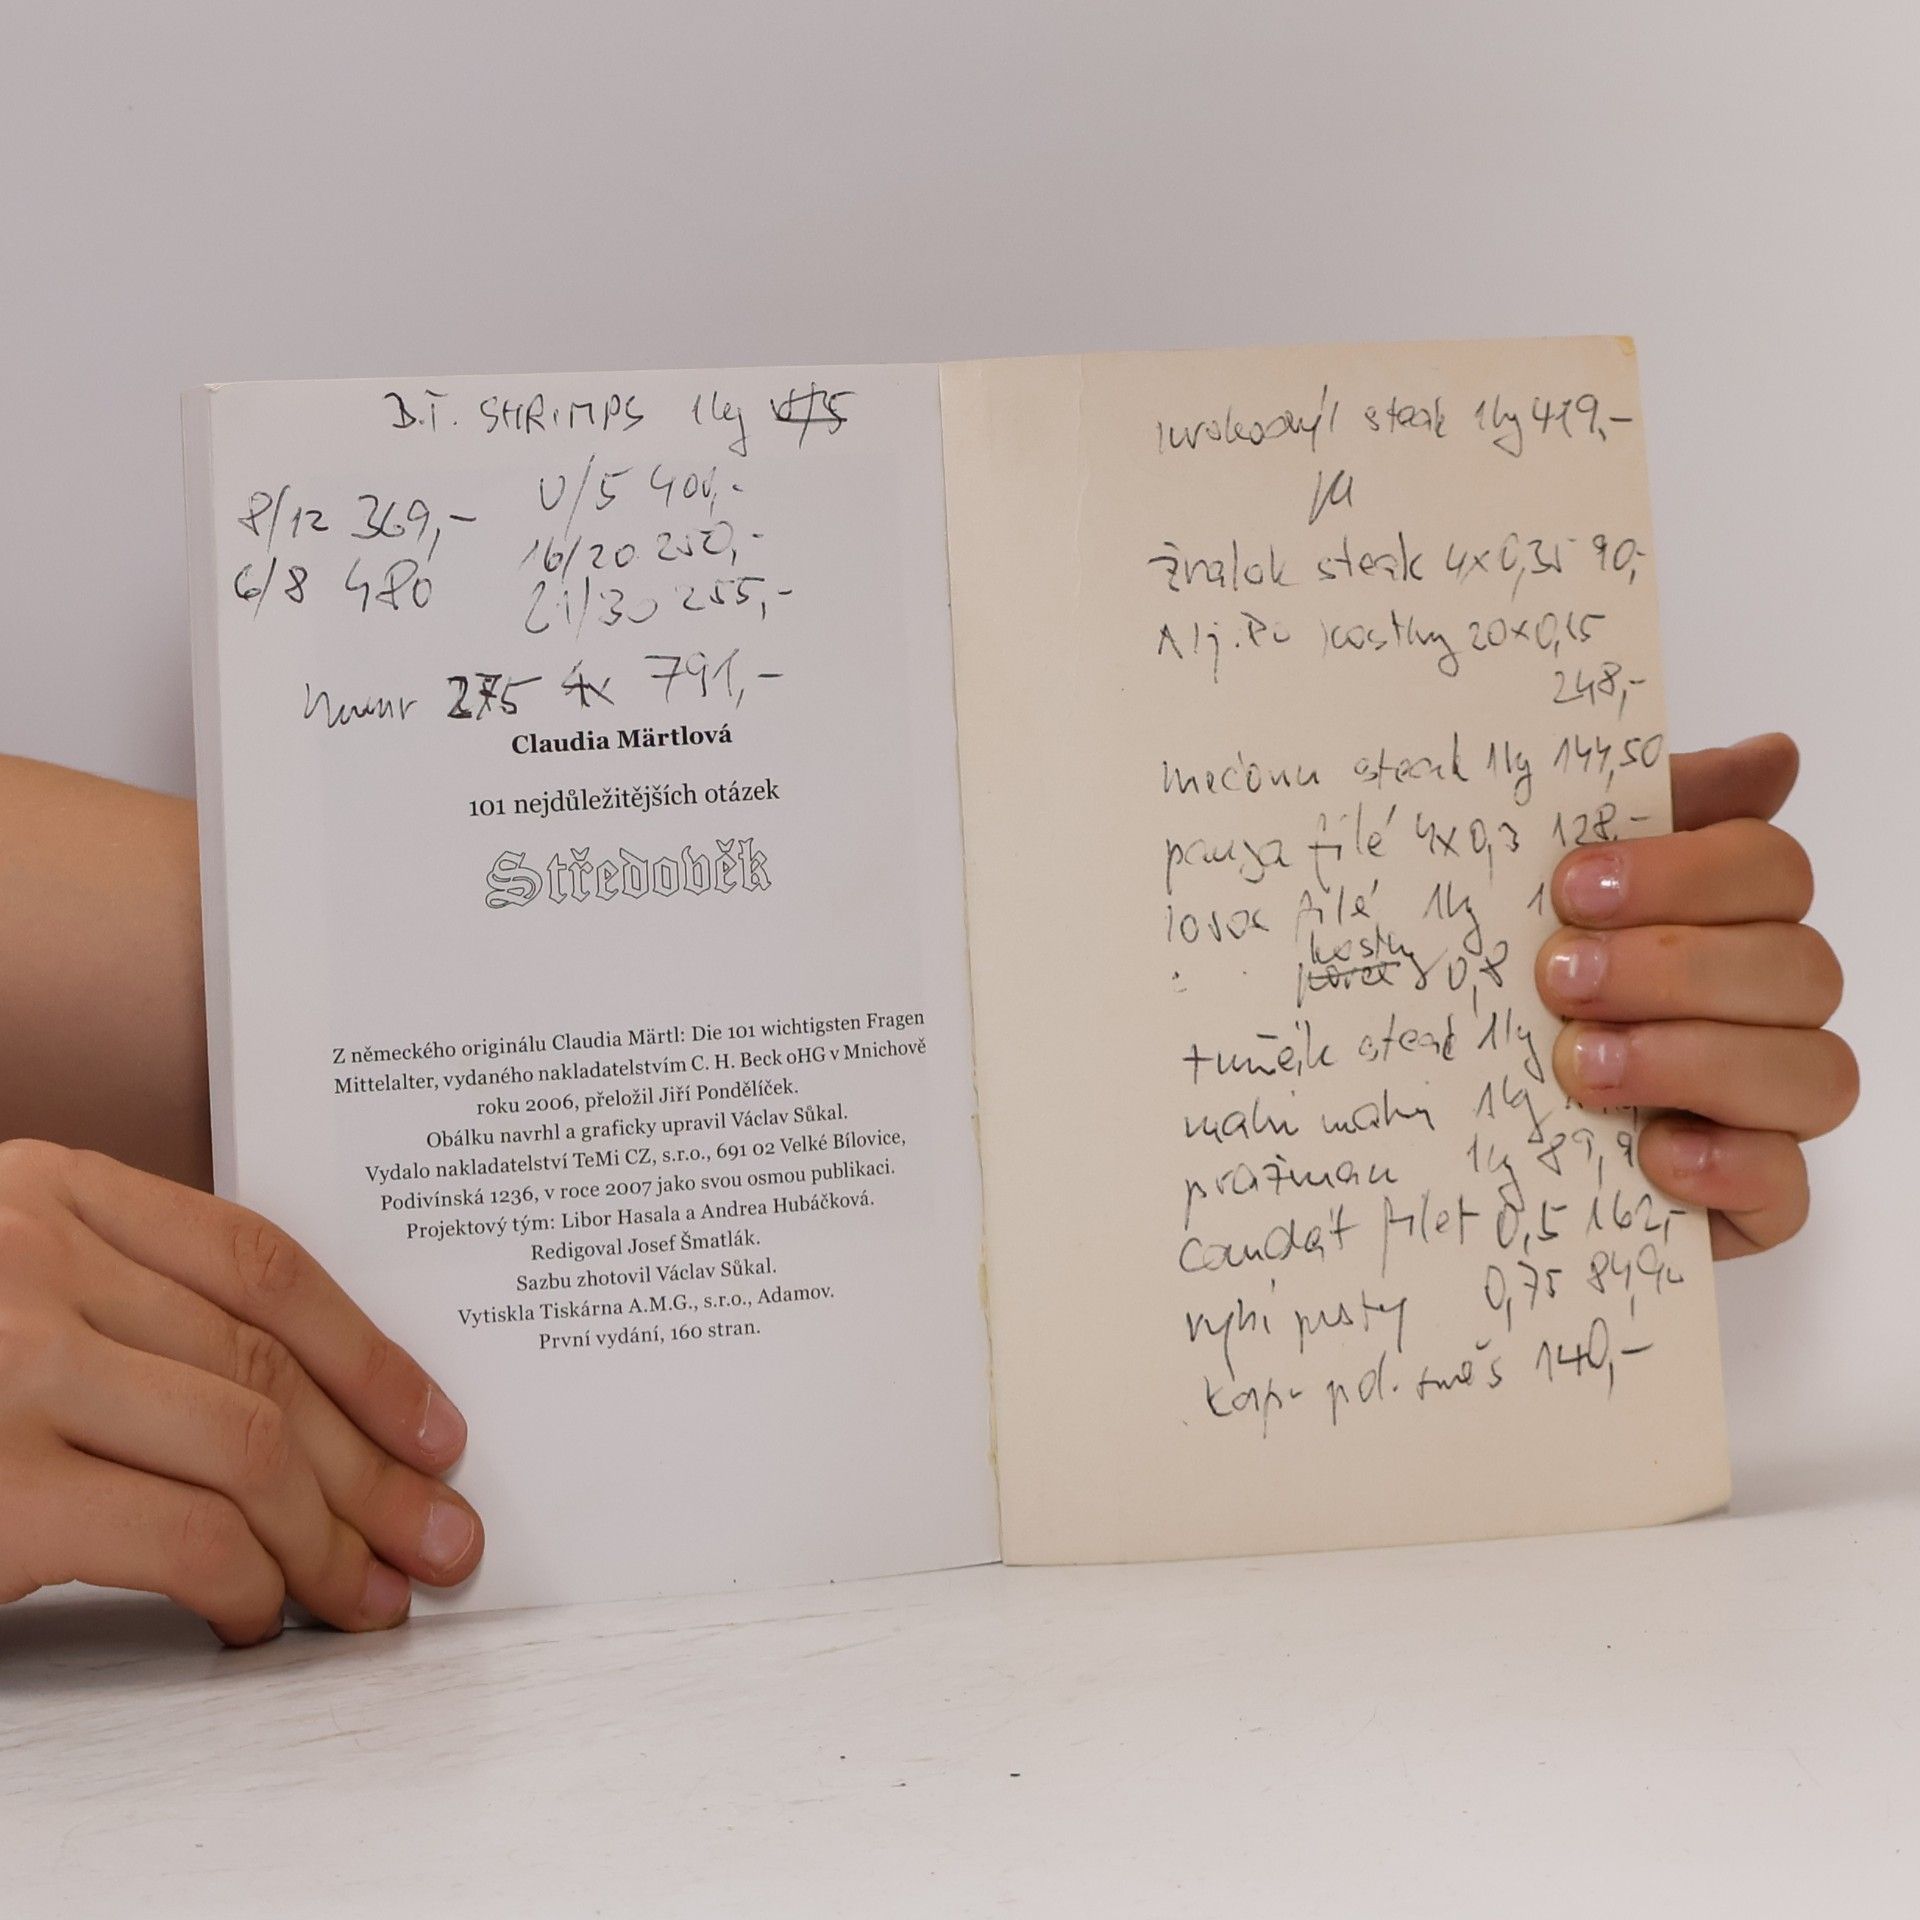 B.T. SHRIMPS 1kg
8/12 369,-
6/8 480
U/5 400,-
16/20 250,-
21/30 255,-
275 4x 791,-
Claudia Märtlová
101 nejdůležitějších otázek
Středověk
Z německého originálu Claudia Märtl: Die 101 wichtigsten Fragen
Mittelalter, vydaného nakladatelstvím C. H. Beck oHG v Mnichově
roku 2006, přeložil Jiří Pondělíček.
Obálku navrhl a graficky upravil Václav Sůkal.
Vydalo nakladatelství TeMi CZ, s.r.o., 691 02 Velké Bílovice,
Podivínská 1236, v roce 2007 jako svou osmou publikaci.
Projektový tým: Libor Hasala a Andrea Hubáčková.
Redigoval Josef Šmatlák.
Sazbu zhotovil Václav Sůkal.
Vytiskla Tiskárna A.M.G., s.r.o., Adamov.
První vydání, 160 stran.
krokodýl steak 1kg 419,-
žralok steak 4x0,35 90,-
Alj. Po kostky 20x0,15
248,-
mečoun steak 1kg 144,50
panga filé 4x0,3 128,-
losos filé 1kg
kostky 0,8
tuňák steak 1kg
mahi mahi 1kg
pražman 1kg 89,9
candát filet 0,5 162,-
rybí prsty 0,75 84,90
směs 140,-